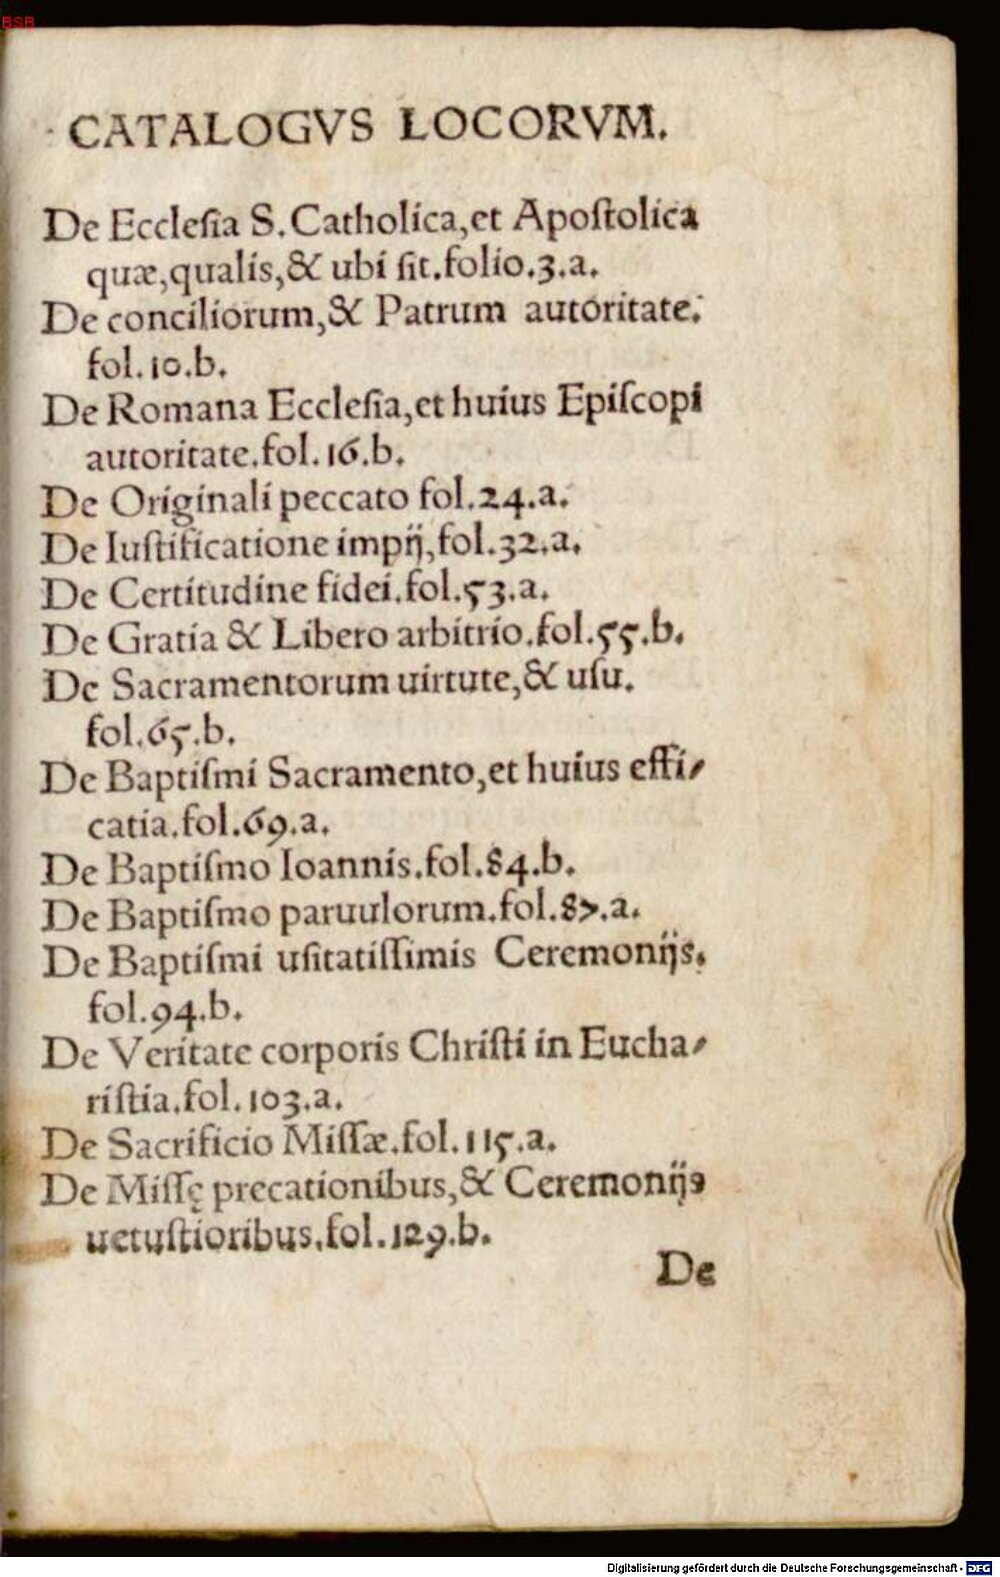 BSB
CATALOGVS LOCORVM.
De Eccleſia S. Catholica, et Apoſtolica
quæ, qualis, & ubi ſit. folio. 3. a.
De conciliorum, & Patrum autoritate.
fol. 10. b.
De Romana Eccleſia, et huius Epiſcopi
autoritate. fol. 16. b.
De Originali peccato fol. 24. a.
De Iuſtificatione impij, fol. 32. a.
De Certitudine fidei. fol. 53. a.
De Gratia & Libero arbitrio. fol. 55. b.
De Sacramentorum uirtute, & uſu.
fol. 65. b.
De Baptiſmi Sacramento, et huius effi⸗
catia. fol. 69. a.
De Baptiſmo Ioannis. fol. 84. b.
De Baptiſmo paruulorum. fol. 87. a.
De Baptiſmi uſitatiſſimis Ceremonijs.
fol. 94. b.
De Veritate corporis Chriſti in Eucha⸗
riſtia. fol. 103. a.
De Sacrificio Miſſæ. fol. 115. a.
De Miſſę precationibus, & Ceremonijs
uetuſtioribus. fol. 129. b.
De
Digitalisierung gefördert durch die Deutsche Forschungsgemeinschaft - DFG